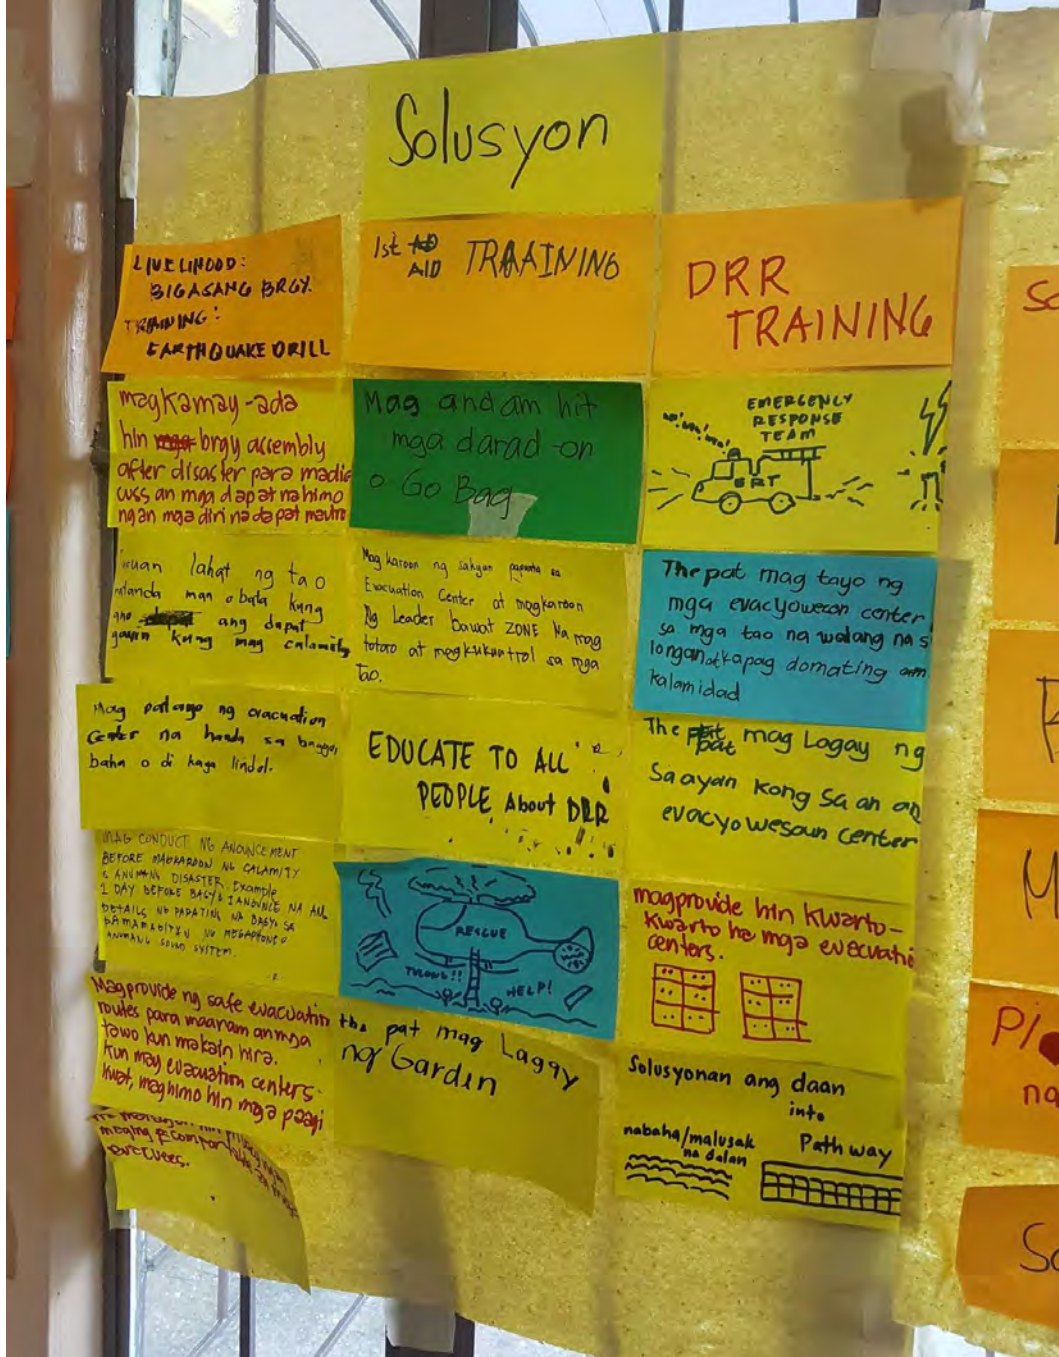 Solusyon
LIVELIHOOD:
BIGASANG BRGY.
TRAINING:
EARTHQUAKE DRILL
1st AID TRAAINING
DRR
TRAINING
magkamay-ada
hin brgy assembly
after disaster para madis
cuss an mga dapat na himo
ngan mga diri na dapat
Mag andam hit
mga darad-on
o Go Bag
EMERGENCY
RESPONSE
TEAM
wi!wi!wi!
ERT
lahat ng tao
matanda man o bata kung
ano ang dapat
gawin kung may calamity
Magkaroon ng sakyan papunta sa
Evacuation Center at magkaroon
Ng Leader bawat ZONE Na mag
totoro at magkukuntrol sa mga
Tao.
The pat mag tayo ng
mga evacyowesan center
sa mga tao na walang na s
longan at kapag domating am
kalamidad
Mag patayo ng evacuation
Center na handa sa bagyo,
baha o di kaya lindol.
EDUCATE TO ALL
PEOPLE About DRR
The pat mag Lagay ng
Saayan kong Saan an
evacyowesoun center
MAG CONDUCT NG ANOUNCEMENT
BEFORE MAGKAROON NG CALAMITY
& ANUMANG DISASTER. Example
2 DAY BEFORE BAGYO IANOUNCE NA ANG
DETAILS NG PARATING NA BAGYO SA
PAMAMAGITAN NG MEGAPHONE O
ANUMANG SOUND SYSTEM.
RESCUE
TULONG!!
HELP!
magprovide hin kwarto-
kwarto ha mga evacuatio
centers.
Magprovide ng safe evacuation
routes para maaram an mga
tawo kun makain hira.
Kun may evacuation centers-
kwat, maghimo hin mga paagi
the pat mag Lagay
ng Garden
Solusyonan ang daan
into
nabaha/malusak
na dalan
Path way
maging comportable an mga
evacuees.
So
P/
na
So